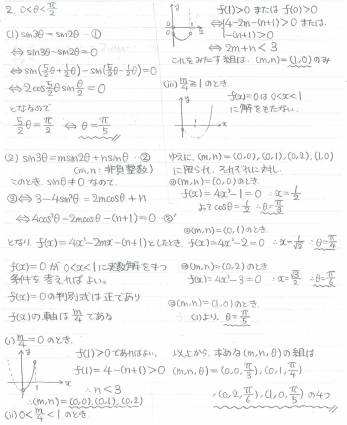 2. 0<θ<π/2
(1) sin3θ=sin2θ …①
⇔ sin3θ-sin2θ=0
⇔ sin(5/2θ+1/2θ)-sin(5/2θ-1/2θ)=0
⇔ 2cos5/2θ sinθ/2=0
となるので
5/2θ=π/2 ⇔ θ=π/5
(2) sin3θ=msin2θ+nsinθ …②
(m,n:非負整数)
このとき、sinθ≠0 なので、
②⇔3-4sin²θ=2mcosθ+n
⇔4cos²θ-2mcosθ-(n+1)=0 …②'
となり f(x)=4x²-2mx-(n+1)としたとき、
f(x)=0 が 0<x<1 に実数解をもつ
条件を考えればよい。
f(x)=0の判別式は正であり
f(x)の軸は m/4 である
(i) m/4=0 のとき、
y
x
f(1)>0であればよい。
f(1)=4-(n+1)>0
∴n<3
∴(m,n)=(0,0),(0,1),(0,2)
(ii) 0<m/4<1 のとき、
f(1)>0 または f(0)>0
⇔{4-2m-(n+1)>0 または、
-(n+1)>0
⇔2m+n<3
これをみたす組は、(m,n)=(1,0)のみ
(iii) m/4≧1のとき
f(x)=0は 0<x<1
に解をもたない。
x
ゆえに、(m,n)=(0,0),(0,1),(0,2),(1,0)
に限られ、それぞれに対し
◎(m,n)=(0,0)のとき、
f(x)=4x²-1=0 ∴x=1/2
よってcosθ=1/2 ∴θ=π/3
◎(m,n)=(0,1)のとき、
f(x)=4x²-2=0 ∴x=1/√2 ∴θ=π/4
◎(m,n)=(0,2)のとき
f(x)=4x²-3=0 ∴x=√3/2 ∴θ=π/6
◎(m,n)=(1,0)のとき、
(1)より、θ=π/5
以上から、求める(m,n,θ)の組は、
(m,n,θ)=(0,0,π/3),(0,1,π/4)
,(0,2,π/6),(1,0,π/5) の4つ